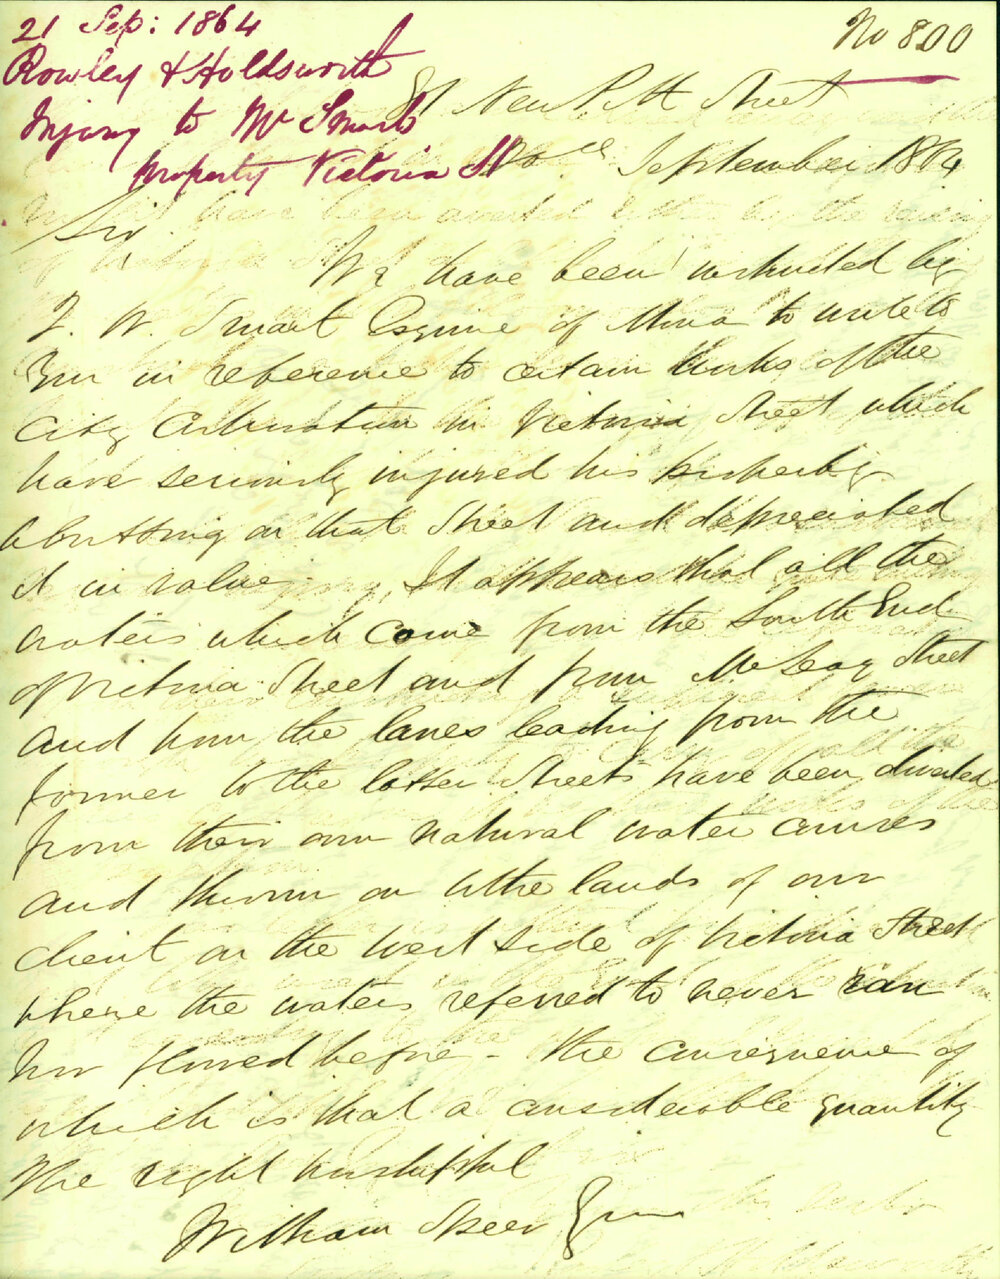 21 Sep: 1864
No 800
Rowley & Holdsworth
Injury to Mr Smarts
property Victoria St
New Pitt Street
20th September 1864
Sir,
We have been instructed by
T. W. Smart Esquire of Mona to write to
you in reference to certain works of the
City Corporation in Victoria Street which
have seriously injured his property
abutting on that Street and depreciated
it in value, It appears that all the
waters which come from the South End
of Victoria Street and from McLeay Street
and from the lanes leading from the
former to the latter Streets have been diverted
from their own natural water courses
and thrown on to the lands of our
client on the west side of Victoria Street
where the waters referred to never ran
nor flowed before - the consequence of
which is that a considerable quantity
The right worshipful
William Speer Esquire